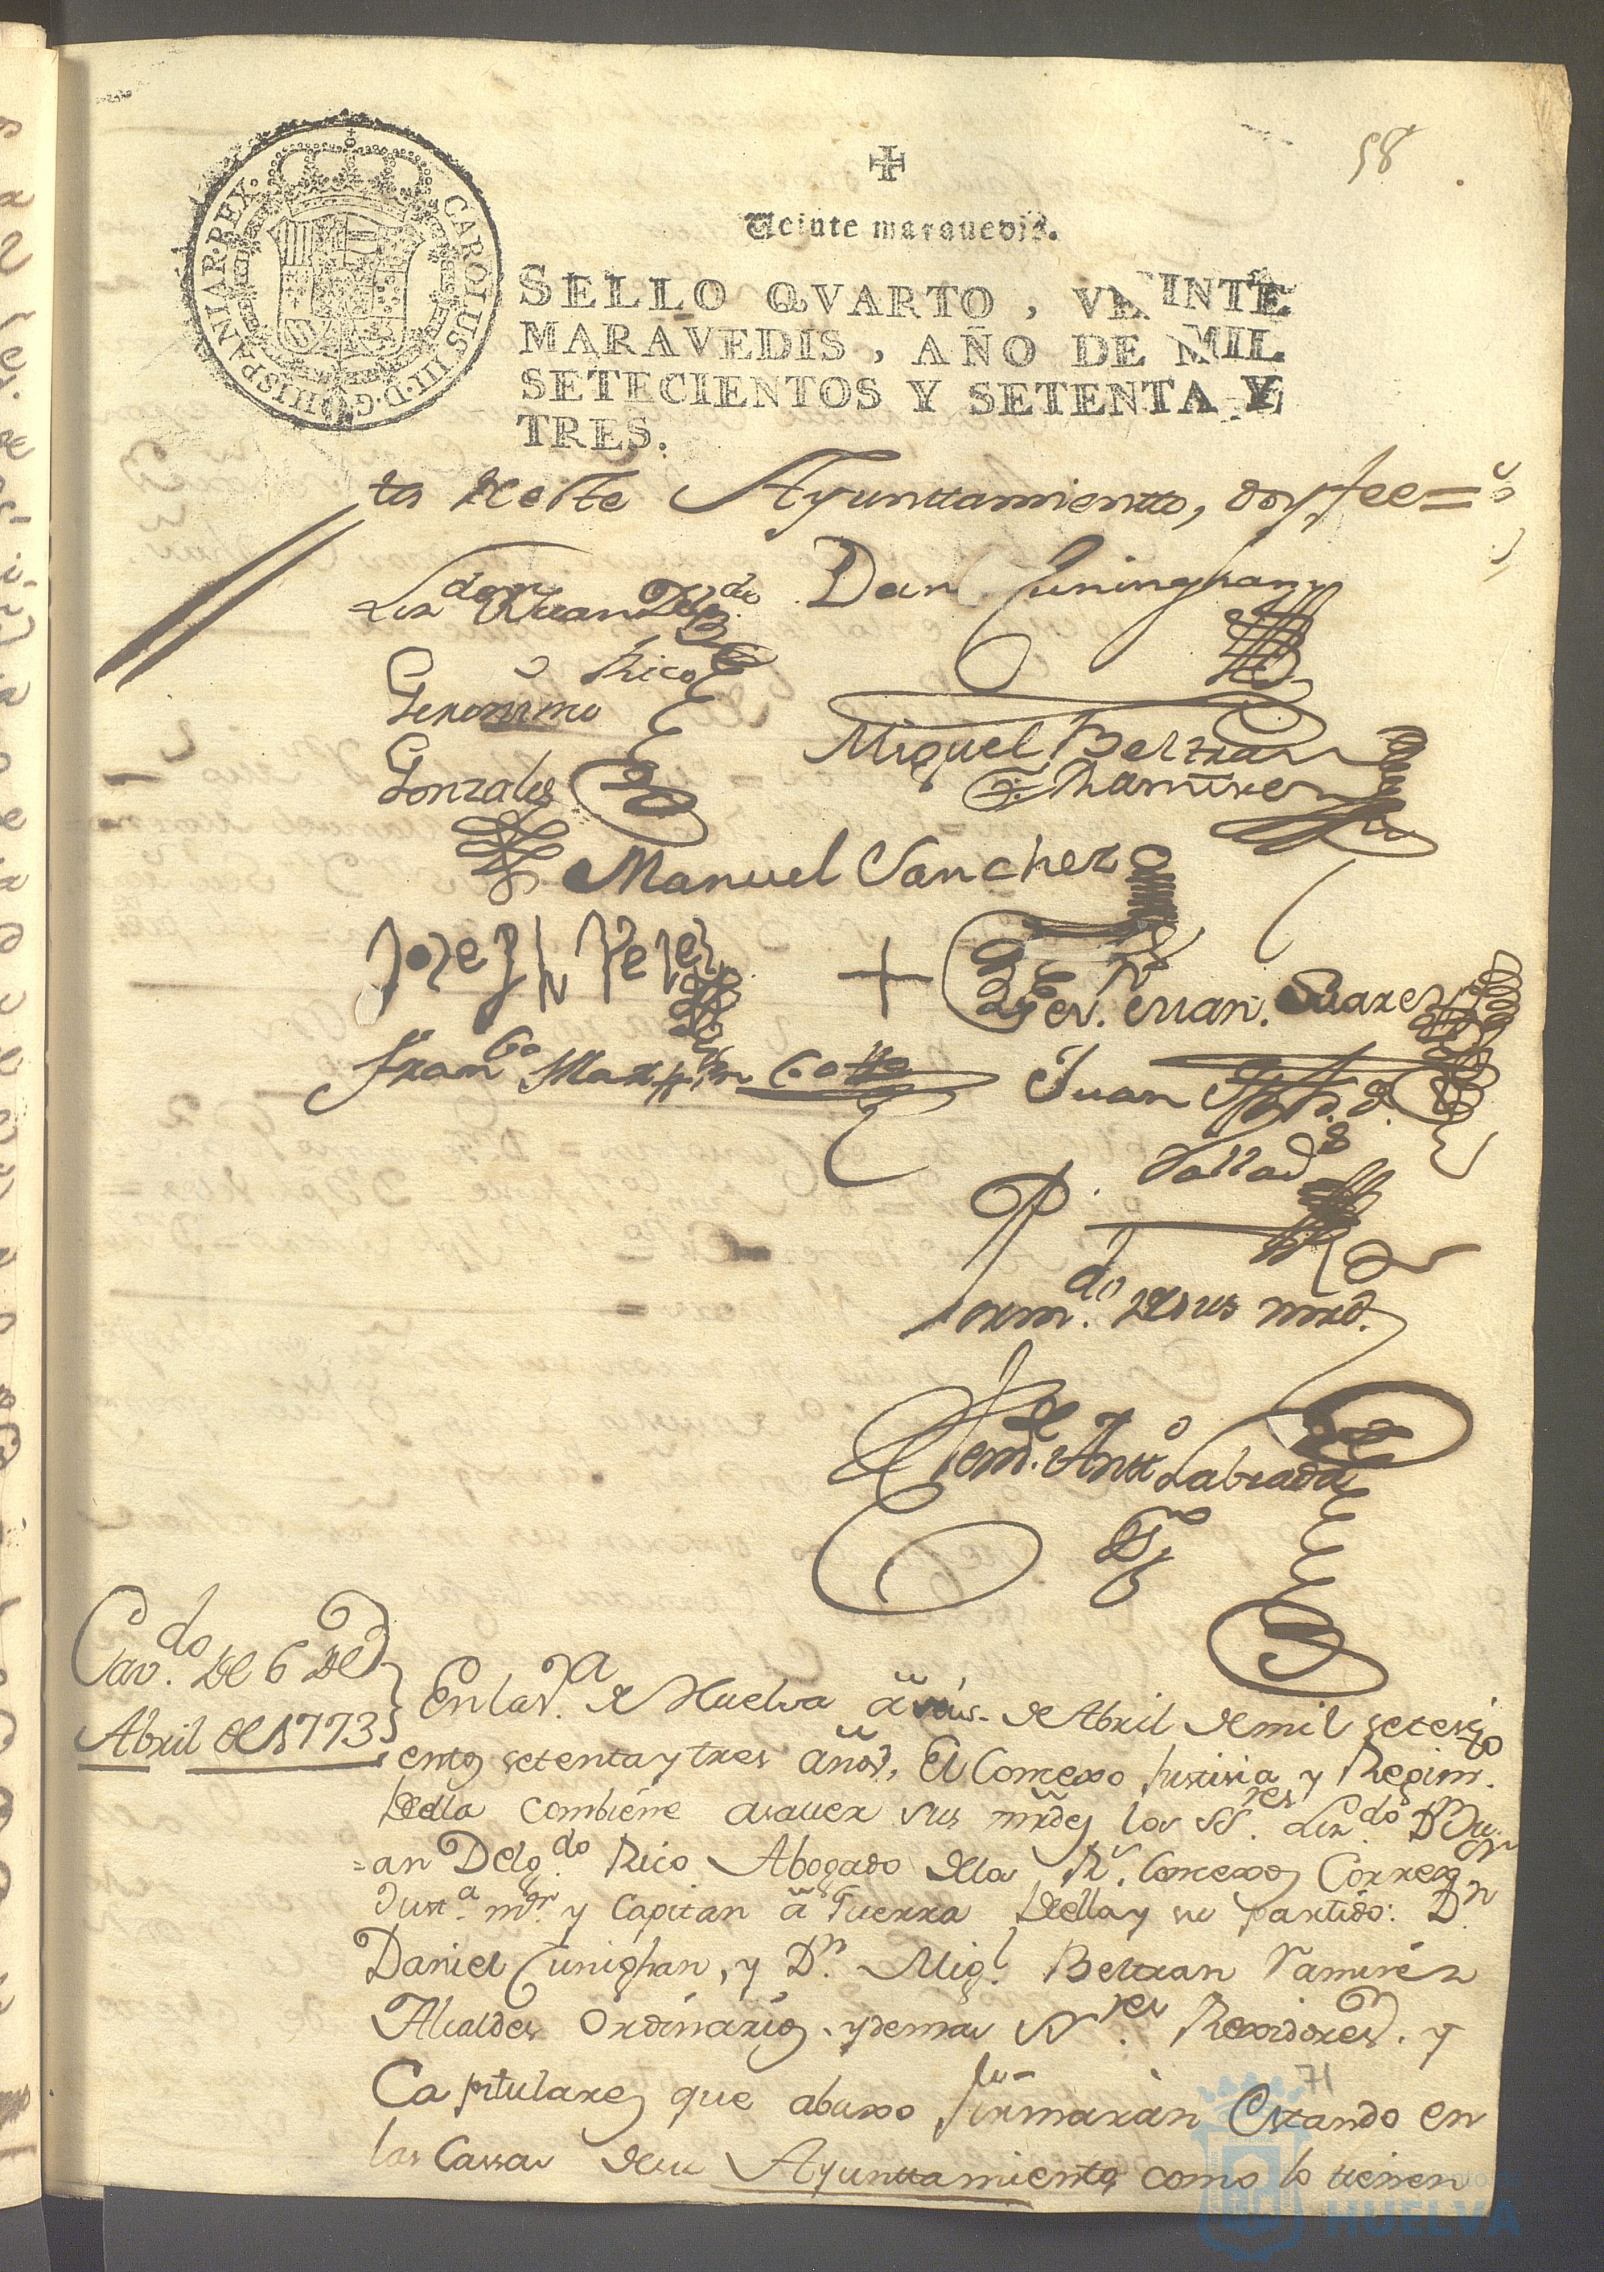 58
Veinte maravedis.
CAROLUS III. D. G. HISPANIAR. REX.
SELLO QVARTO, VEINTE
MARAVEDIS, AÑO DE MIL
SETECIENTOS Y SETENTA Y
TRES.
to de este Ayunttamientto, doy fee =
Lizdo. Dn Juan Delgdo
Rico
Dan Cuninghan
Geronimo
Gonzales
Miguel Beltran
Ramirez
Manuel Sanchez
Jozeph Perez
+
Juan. Suarez
Franco Martin Cotto
Juan
Vallads
P.
mdo de sus mrd.
Antto Labrada
Cavdo. de 6 de
Abril de 1773
En la va. de Huelva a seis de Abril de mil seteci
entos setenta y tres años, El Concexo Justisia y Regim.
de ella combiene asauer sus mrdes los SSres. Lizdo. Dn Ju
=an Delgdo. Rico Abogado de los Rs. Concexos Correxor
Justa. mor. y Capitan a Guerra de ella y su partido: Dn.
Daniel Cunighan, y Dn. Migl. Beltran Ramirez
Alcaldes Ordinarios y demas SSres. Rexidores. y
Capitulares que abaxo firmaràn Estando en
las Casas de su Ayunttamiento como lo tienen
71
HUELVA